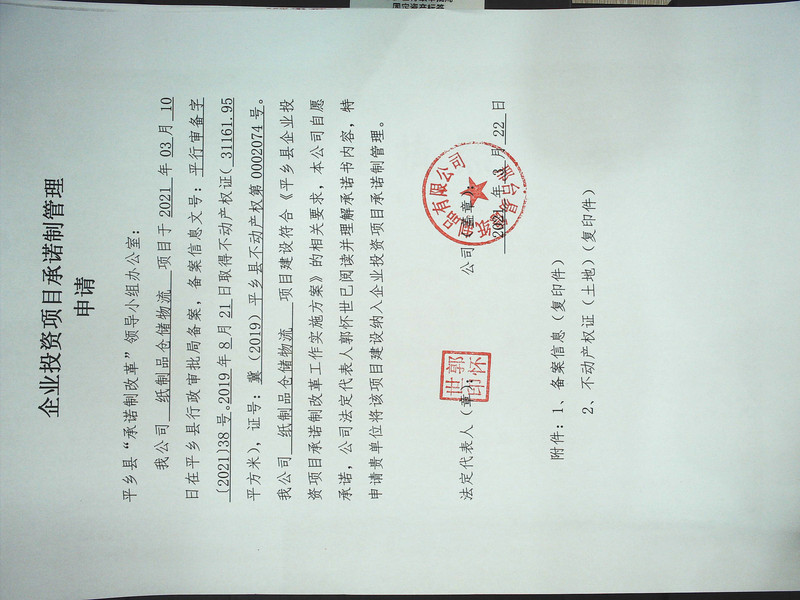 企业投资项目承诺制管理
申请
平乡县“承诺制改革”领导小组办公室：
我公司 纸制品仓储物流 项目于 2021 年 03 月 10
日在平乡县行政审批局备案，备案信息文号：平行审备字
〔2021〕38 号。2019 年 8 月 21 日取得不动产权证（ 31161.95
平方米），证号：冀（2019）平乡县不动产权第 0002074 号。
我公司 纸制品仓储物流 项目建设符合《平乡县企业投
资项目承诺制改革工作实施方案》的相关要求，本公司自愿
承诺，公司法定代表人郭怀世已阅读并理解承诺书内容，特
申请贵单位将该项目建设纳入企业投资项目承诺制管理。
法定代表人（章）： 公司（盖章）：
郭怀
世印
品有限公司
2021 年 3 月 22 日
附件：1、备案信息（复印件）
2、不动产权证（土地）（复印件）